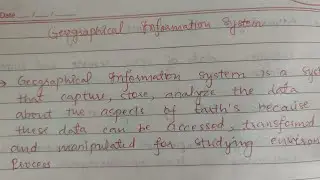 Date
Geographical Information System
→ Geographical Information System is a Syst
that capture, store, analyze the data
about the aspects of truth's because
these data can be accessed, transformed
and manipulated for studying environ
Process